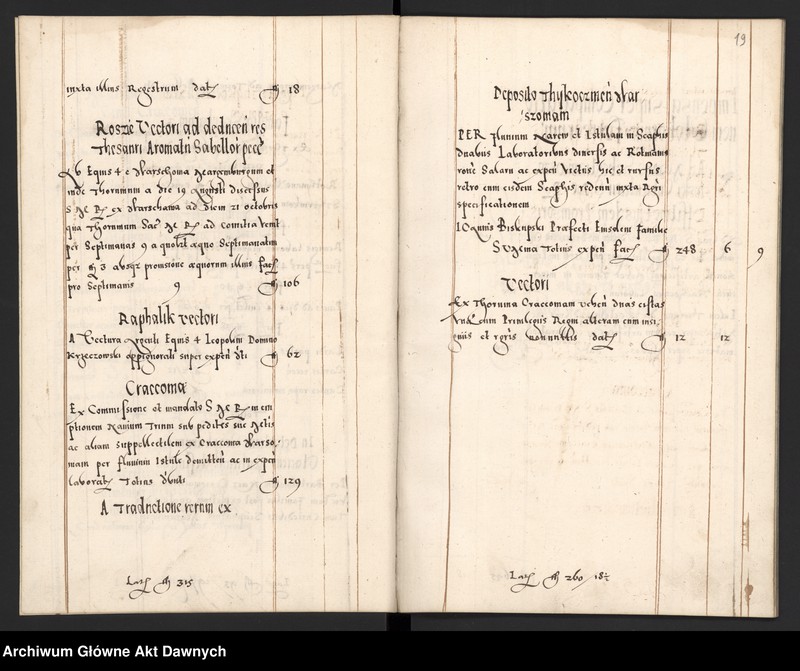 iuxta illius Regestrum dat fl 18
Rosze Vectori ad deducen res
Thesauri Aromatu Sabellor pecc
Ab Equis 4 e Warschoma
inde Thorunium a die 19 Augusti discessus
S M R ex Warschawa ad diem 21 octobris
qua Thorunium Sac M R ad Comitia venit
per Septimanas 9 a quolibet aequo Septimanatim
per fl 3 absque prouisione aequorum illius fact
pro Septimanis 9 fl 106
Raphalik Vectori
A Vectura Equis 4 Leopolim Domino
Krzeczowski super expen dti fl 62
Craccoma
Ex Commissione et mandato S M R in em
ptionem Nauium Trium sub pedites suae Mtis
ac aliam suppellectilem ex Cracouia Warso
miam per fluuium Istule demitten ac in expen
laborat Totius fl 129
A Traductione rerum ex
Lat fl 315
19
Deposito Thykoczinen War
szomam
PER fluuium Narew et Istulam in Scaphis
duabus Laboratoribus diuersis ac Rotmano
Salarii ac expen Victus hic et rursus
retro cum eisdem Scaphis iuxta Rgri
specificationem
Biskupski Praefecti eiusdem familie
Summa Totius expen fact fl 248 6 9
Vectori
Ex Thorunia Craccouiam vehen duas cistas
Vnam cum Priuilegiis Regni alteram cum insi
gniis et rgris nonnullis dat fl 12 12
Lat fl 260 / 18½
Archiwum Główne Akt Dawnych